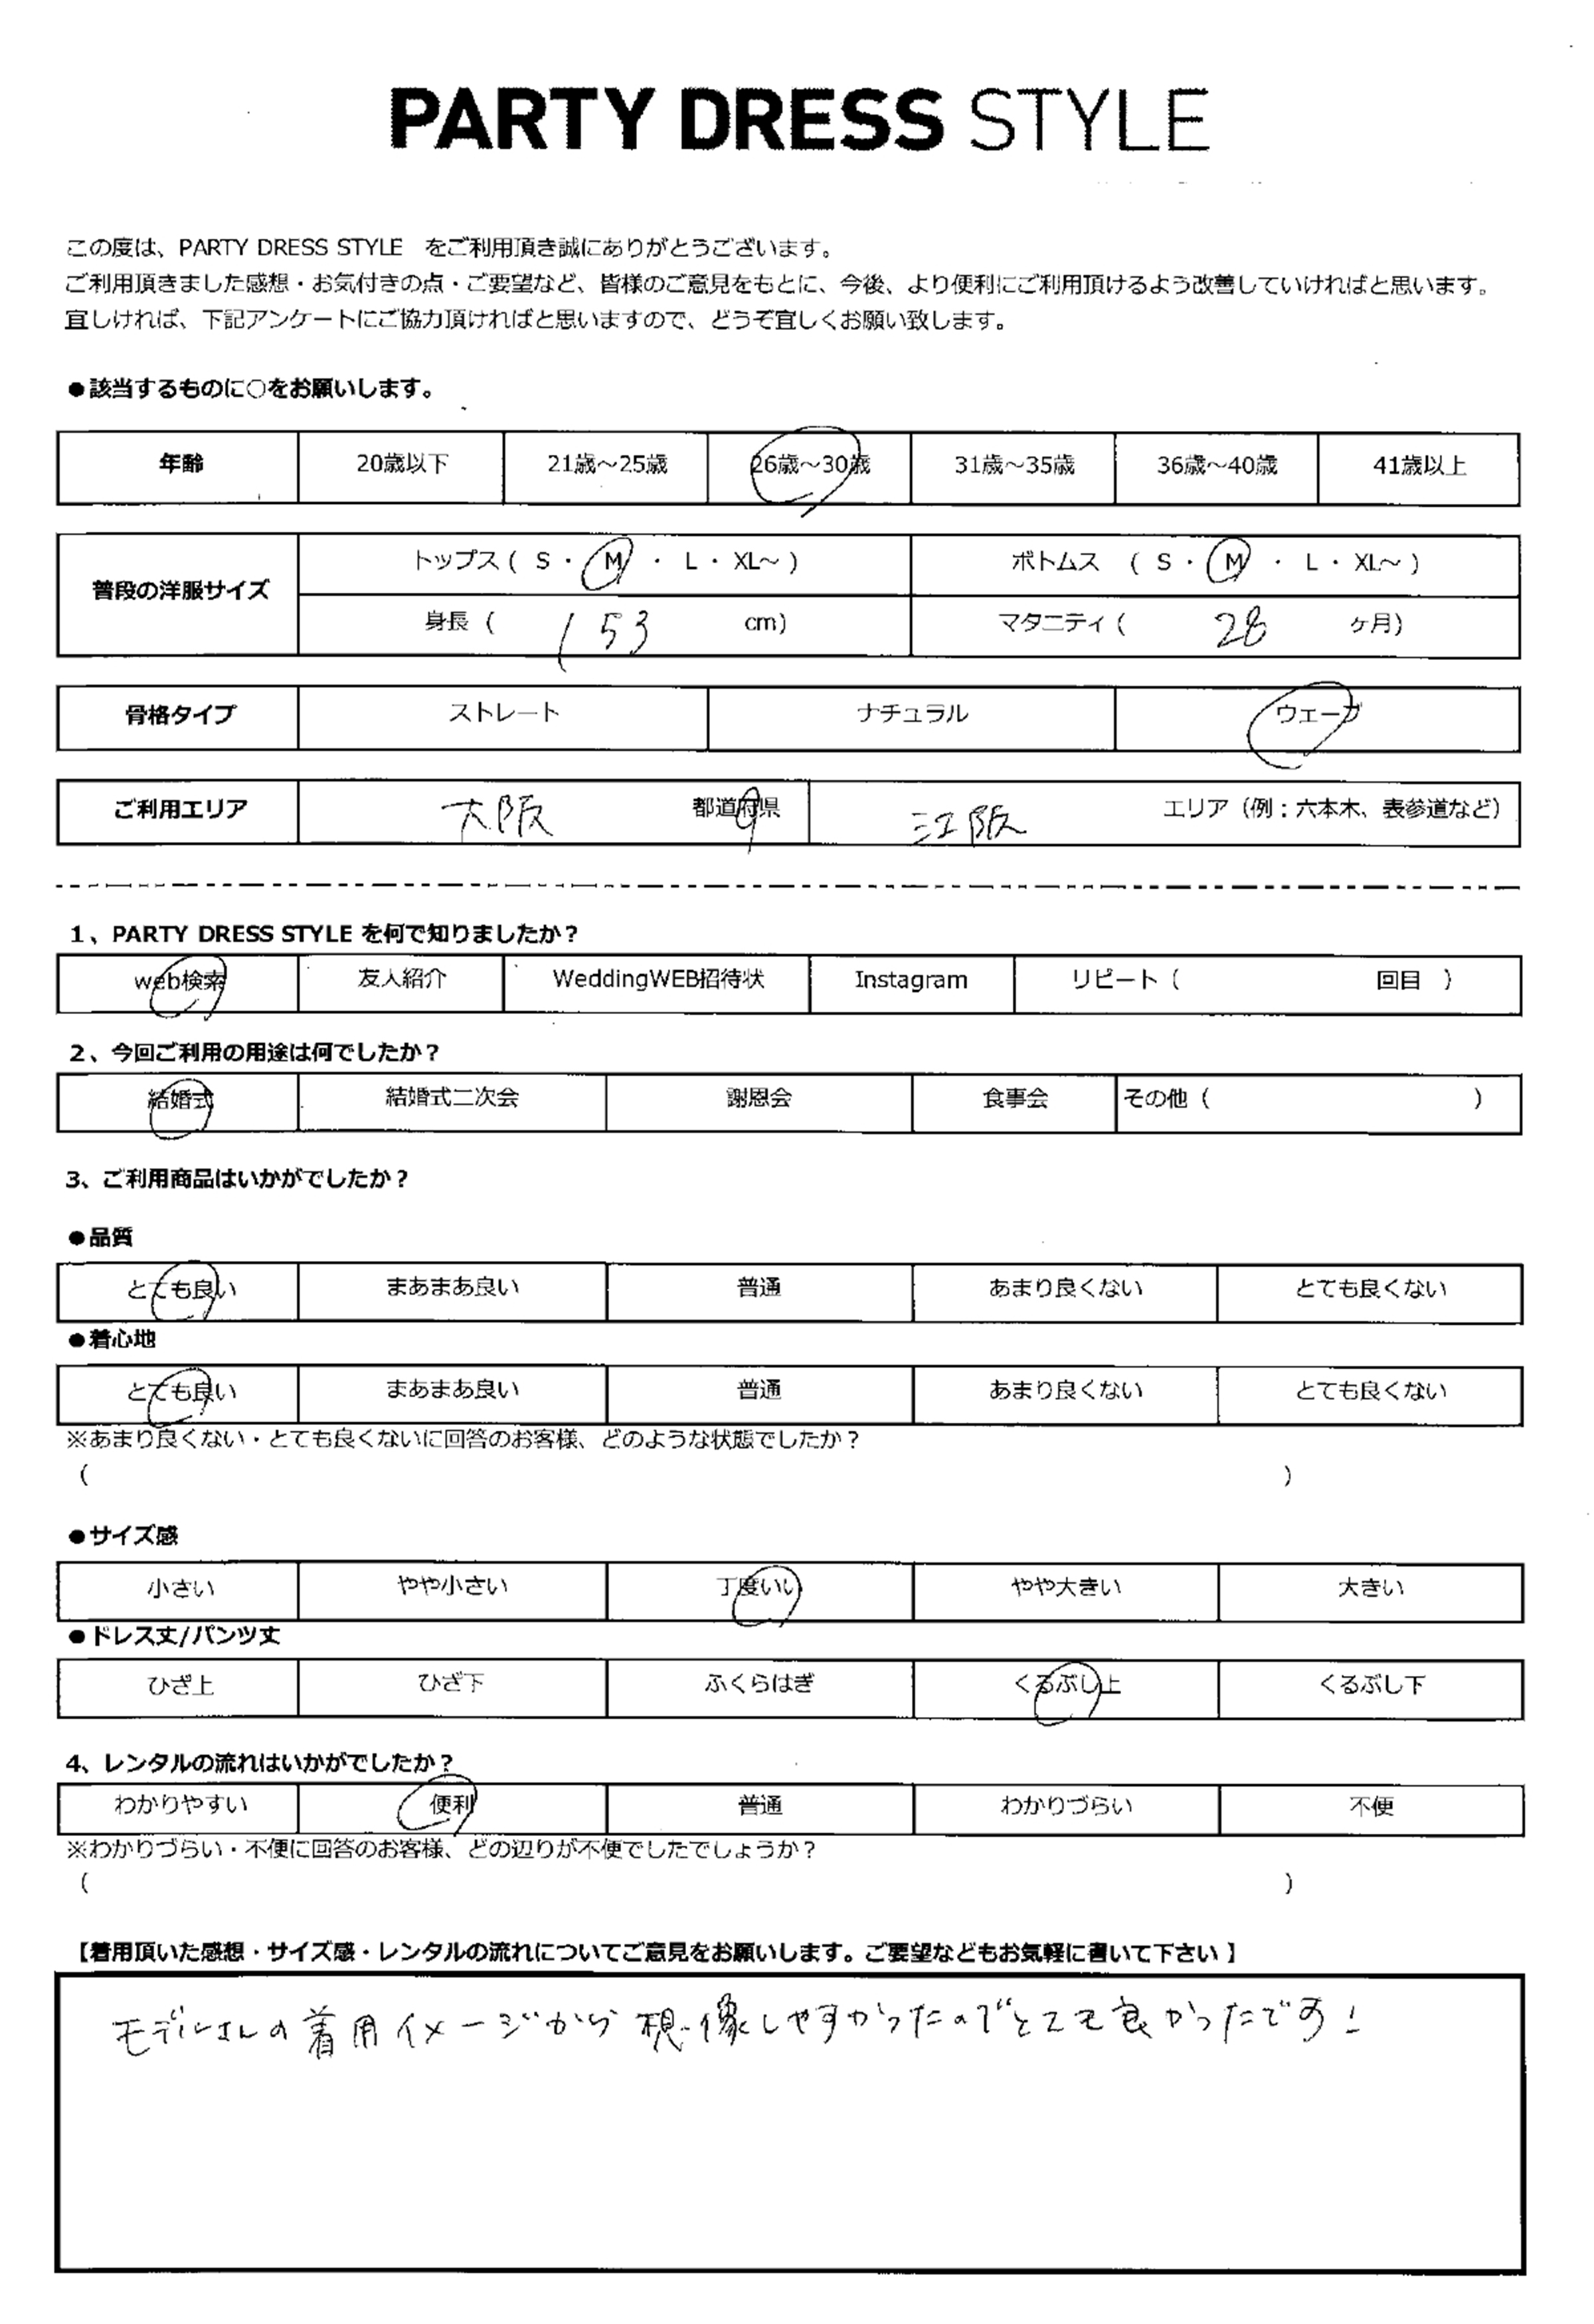 PARTY DRESS STYLE
この度は、PARTY DRESS STYLE をご利用頂き誠にありがとうございます。
ご利用頂きました感想・お気付きの点・ご要望など、皆様のご意見をもとに、今後、より便利にご利用頂けるよう改善していければと思います。
宜しければ、下記アンケートにご協力頂ければと思いますので、どうぞ宜しくお願い致します。
●該当するものに○をお願いします。
年齢 20歳以下 21歳～25歳 26歳～30歳 31歳～35歳 36歳～40歳 41歳以上
普段の洋服サイズ トップス ( S ・ M ・ L ・ XL～ ) ボトムス ( S ・ M ・ L ・ XL～ )
身長 ( 153 cm) マタニティ ( 28 ヶ月)
骨格タイプ ストレート ナチュラル ウェーブ
ご利用エリア 大阪 都道府県 江阪 エリア（例：六本木、表参道など）
1、PARTY DRESS STYLE を何で知りましたか？
web検索 友人紹介 WeddingWEB招待状 Instagram リピート ( 回目 )
2、今回ご利用の用途は何でしたか？
結婚式 結婚式二次会 謝恩会 食事会 その他 ( )
3、ご利用商品はいかがでしたか？
●品質
とても良い まあまあ良い 普通 あまり良くない とても良くない
●着心地
とても良い まあまあ良い 普通 あまり良くない とても良くない
※あまり良くない・とても良くないに回答のお客様、どのような状態でしたか？
( )
●サイズ感
小さい やや小さい 丁度いい やや大きい 大きい
●ドレス丈/パンツ丈
ひざ上 ひざ下 ふくらはぎ くるぶし上 くるぶし下
4、レンタルの流れはいかがでしたか？
わかりやすい 便利 普通 わかりづらい 不便
※わかりづらい・不便に回答のお客様、どの辺りが不便でしたでしょうか？
( )
【着用頂いた感想・サイズ感・レンタルの流れについてご意見をお願いします。ご要望などもお気軽に書いて下さい】
モデルさんの着用イメージから想像しやすかったのでとても良かったです！